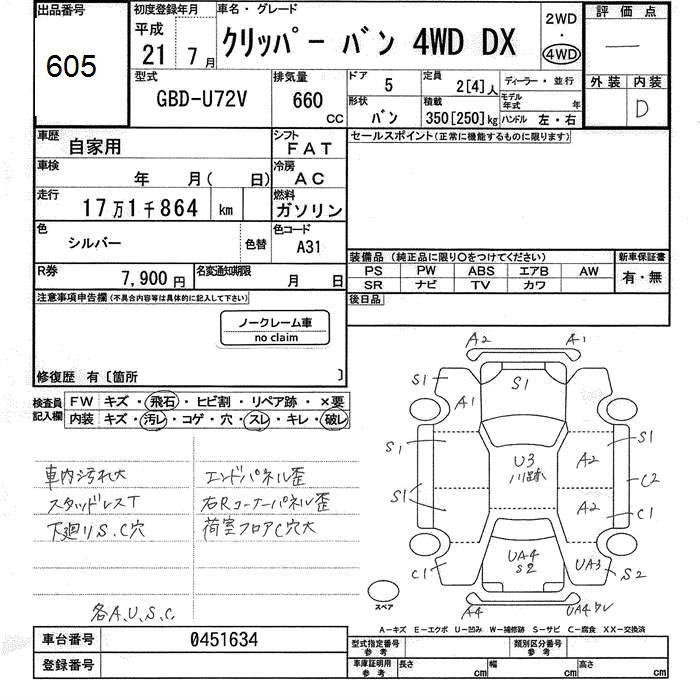 出品番号
605
初度登録年月
平成
21年7月
車名・グレード
クリッパー バン 4WD DX
2WD
・
4WD
評価点
―
外装 内装
D
型式
GBD-U72V
排気量
660
CC
ドア
5
定員
2[4]人
ディーラー・並行
形状
バン
積載
350[250]kg
モデル年式 年
ハンドル 左・右
車歴
自家用
シフト
FAT
車検
年 月( 日)
冷房
AC
走行
17万1千864 km
燃料
ガソリン
色
シルバー
色替
色コード
A31
R券
7,900円
名変通知期限
月 日
セールスポイント(正常に機能するものに限ります)
装備品(純正品に限り○をつけてください)
PS PW ABS エアB AW
SR ナビ TV カワ
新車保証書
有・無
後日品
注意事項申告欄(不具合内容等は具体的に記入して下さい)
ノークレーム車
no claim
修復歴 有〔箇所 〕
検査員記入欄
FW キズ・飛石・ヒビ割・リペア跡・×要
内装 キズ・汚レ・コゲ・穴・スレ・キレ・破レ
車内汚れ大
スタッドレスT
下廻りS.C穴
エンドパネル歪
右Rコーナーパネル歪
荷室フロアC穴大
各A.U.S.C
A2 A1
S1 S1
A1
S1 S1
U3 A2
ハ跡
C2
S1
A2 C1
UA4
S2
UA3
C1 S2
A4 UA4ワレ
スペア
A―キズ E―エクボ U―凹み W―補修跡 S―サビ C―腐食 XX―交換済
車台番号
0451634
登録番号
型式指定番号
参考
類別区分番号
参考
車庫証明用
参考
長さ cm
幅 cm
高さ cm